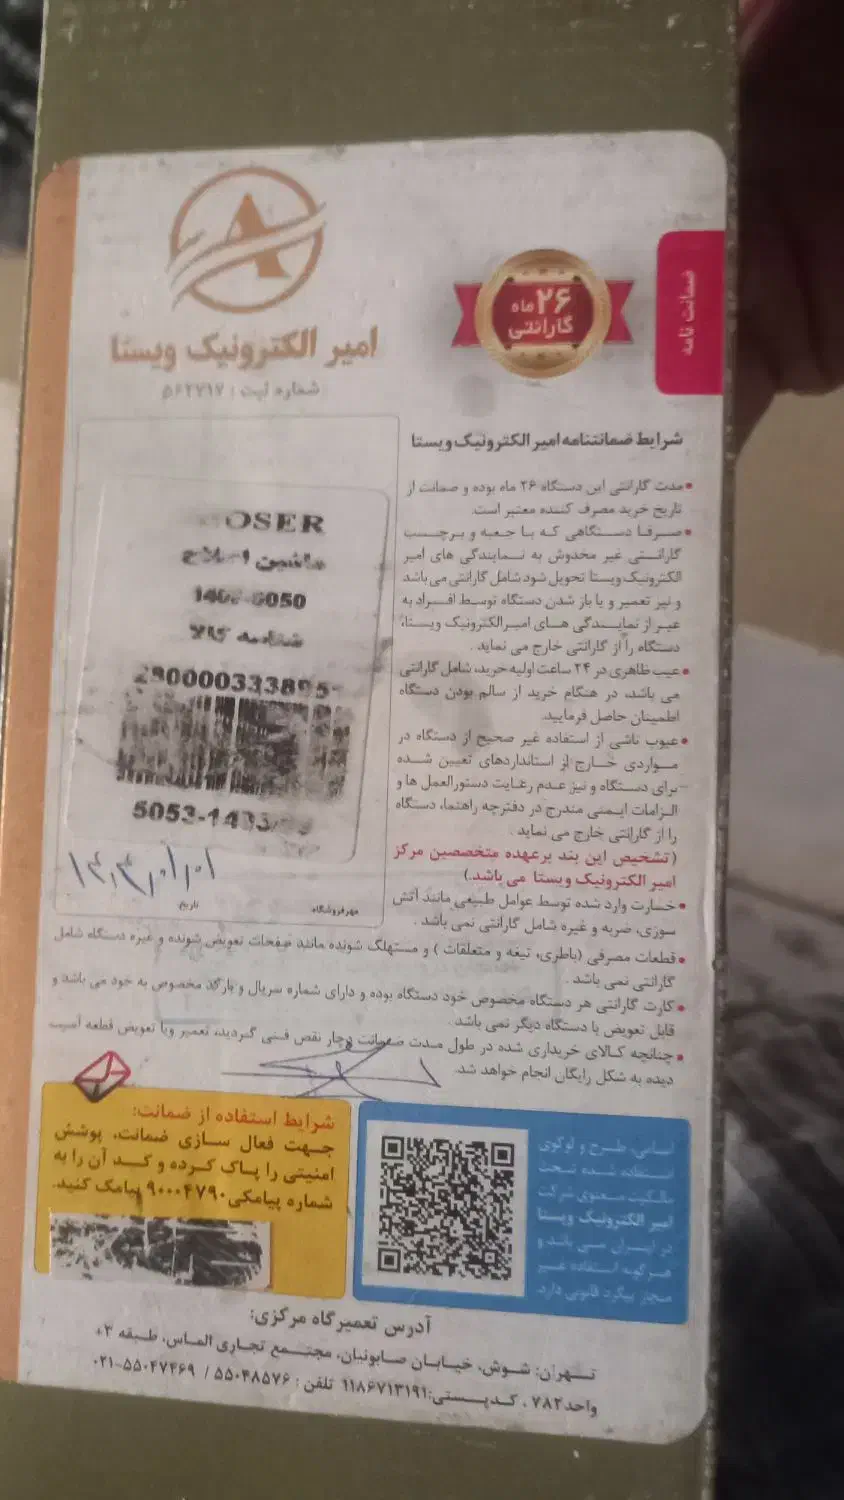 ضمانت نامه
۲۶ ماه
گارانتی
A
امیر الکترونیک ویستا
شماره ثبت : ۵۶۲۷۱۷
شرایط ضمانتنامه امیر الکترونیک ویستا
•مدت گارانتی این دستگاه ۲۶ ماه بوده و ضمانت از
تاریخ خرید مصرف کننده معتبر است.
•صرفا دستگاهی که با جعبه و برچسب
گارانتی غیر مخدوش به نمایندگی های امیر
الکترونیک ویستا تحویل شود شامل گارانتی می باشد
و نیز تعمیر و یا باز شدن دستگاه توسط افراد به
غیر از نمایندگی های امیرالکترونیک ویستا،
دستگاه را از گارانتی خارج می نماید .
•عیب ظاهری در ۲۴ ساعت اولیه خرید، شامل گارانتی
می باشد، در هنگام خرید از سالم بودن دستگاه
اطمینان حاصل فرمایید.
•عیوب ناشی از استفاده غیر صحیح از دستگاه در
مواردی خارج از استانداردهای تعیین شده
برای دستگاه و نیز عدم رعایت دستورالعمل ها و
الزامات ایمنی مندرج در دفترچه راهنما، دستگاه
را از گارانتی خارج می نماید .
(تشخیص این بند برعهده متخصصین مرکز
امیر الکترونیک ویستا می باشد.)
•خسارت وارد شده توسط عوامل طبیعی مانند آتش
سوزی، ضربه و غیره شامل گارانتی نمی باشد .
•قطعات مصرفی (باطری، تیغه و متعلقات ) و مستهلک شونده مانند صفحات تعویض شونده و غیره دستگاه شامل
گارانتی نمی باشد .
•کارت گارانتی هر دستگاه مخصوص خود دستگاه بوده و دارای شماره سریال و بارکد مخصوص به خود می باشد و
قابل تعویض با دستگاه دیگر نمی باشد .
•چنانچه کالای خریداری شده در طول مدت ضمانت دچار نقص فنی گردید، تعمیر ویا تعویض قطعه آسیب
دیده به شکل رایگان انجام خواهد شد.
OSER
ماشین اصلاح
شناسه کالا
مهرفروشگاه:
تاریخ:
شرایط استفاده از ضمانت:
جهت فعال سازی ضمانت، پوشش
امنیتی را پاک کرده و کد آن را به
شماره پیامکی ۹۰۰۰۴۷۹۰ پیامک کنید.
اسامی، طرح و لوگوی
استفاده شده تحت
مالکیت معنوی شرکت
امیر الکترونیک ویستا
در ایران می باشد و
هرگونه استفاده غیر
مجاز پیگرد قانونی دارد.
آدرس تعمیرگاه مرکزی:
تهران: شوش، خیابان صابونیان، مجتمع تجاری الماس، طبقه ۳+
واحد۷۸۲ ، کدپستی:۱۱۸۶۷۱۳۱۹۱ تلفن : ۵۵۰۴۸۵۷۶ / ۰۲۱-۵۵۰۴۷۴۶۹